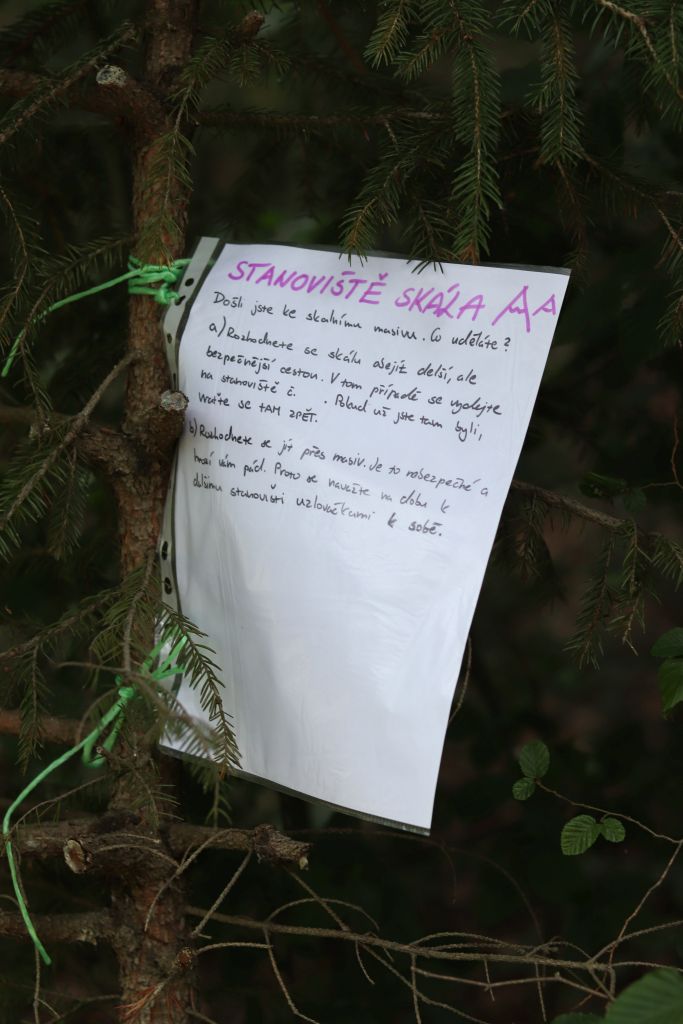 STANOVIŠTĚ SKÁLA
Došli jste ke skalnímu masivu. Co uděláte?
a) Rozhodnete se skálu obejít delší, ale
bezpečnější cestou. V tom případě se vydejte
na stanoviště č. . Pokud už jste tam byli,
vraťte se TAM ZPĚT.
b) Rozhodnete se jít přes masiv. Je to nebezpečné a
hrozí vám pád. Proto se navažte na dobu k
dalšímu stanovišti uzlovačkami k sobě.